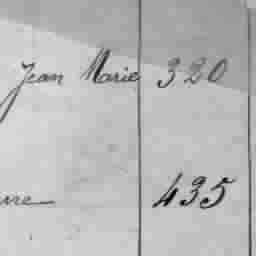 Jean Marie 320
rre 435